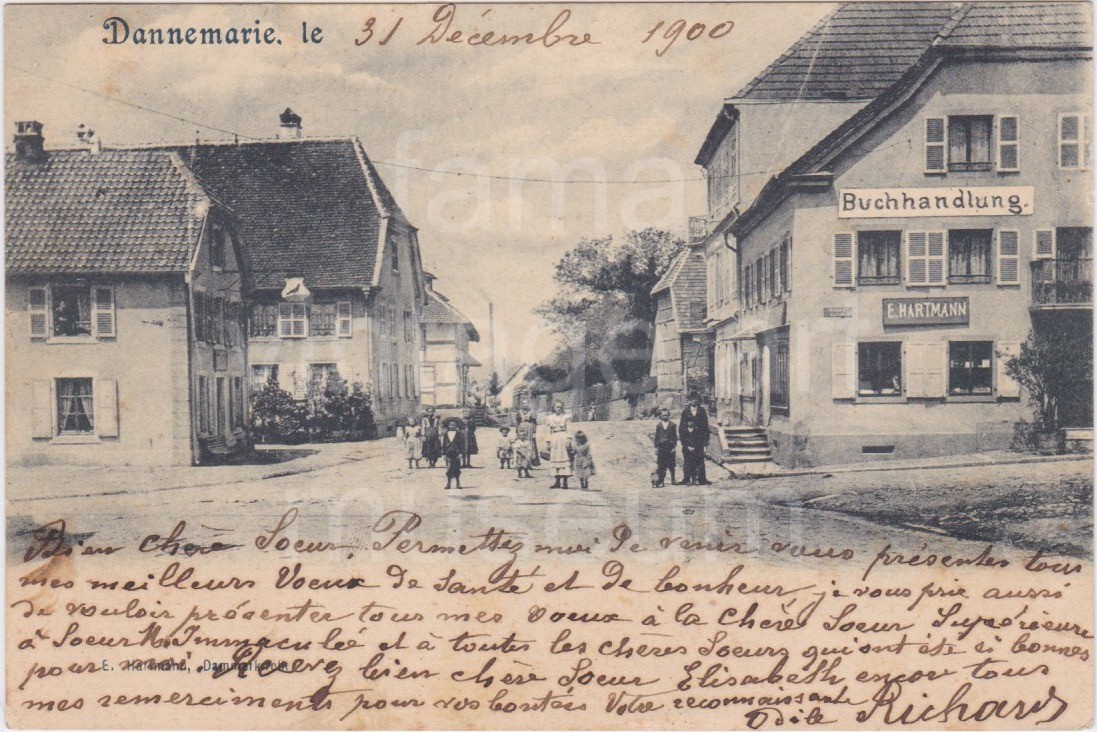 Dannemarie, le 31 Décembre 1900
Buchhandlung.
E. HARTMANN
fama
museum
Bien chère Soeur, Permettez moi de venir vous présenter tous
mes meilleurs Voeux de Santé et de bonheur, je vous prie aussi
de vouloir présenter tous mes voeux à la chère Soeur Supérieure
à Soeur M. Immaculée et à toutes les chères Soeurs qui ont été si bonnes
pour moi. Recevez bien chère Soeur Elisabeth encor tous
E. Hartmann, Dammerkirch.
mes remerciments pour vos bontées Votre reconnaissante
Odile Richard